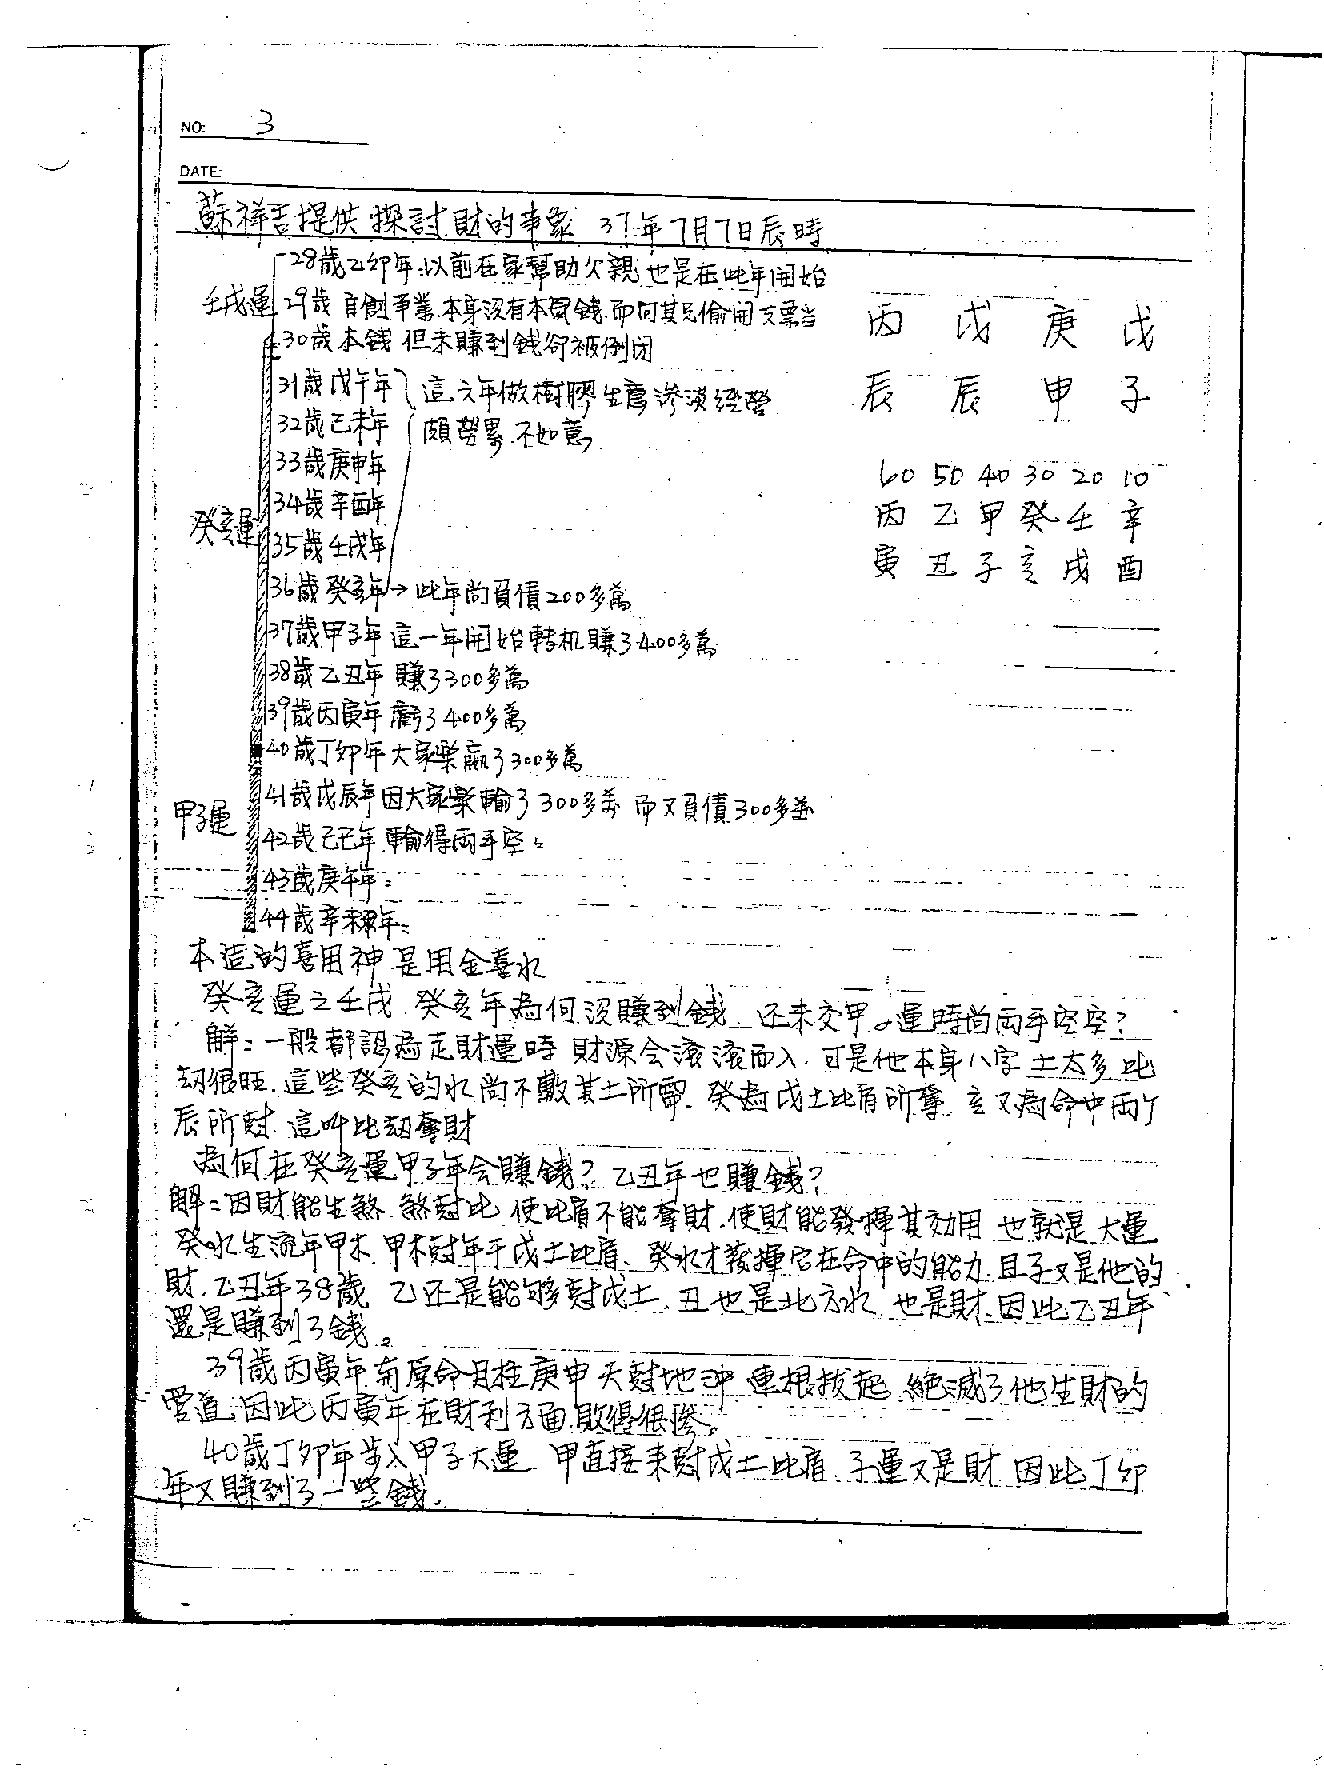 NO: 3
DATE:
蘇祥吉提供 探討財的事象 37年7月7日辰時
28歲乙卯年.以前在家幫助父親 也是在此年開始
壬戌運 29歲 自創事業本身沒有本質錢.而向其兄偷開支票當
30歲本錢 但未賺到錢卻被倒閉
丙 戊 庚 戊
辰 辰 申 子
31歲戊午年 這六年做樹膠生意滲淡經營
32歲己未年 頗勞累.不如意
33歲庚申年
34歲辛酉年
癸亥運
35歲壬戌年
36歲癸亥年→此年尚負債200多萬
60 50 40 30 20 10
丙 乙 甲 癸 壬 辛
寅 丑 子 亥 戌 酉
37歲甲子年 這一年開始轉机賺了400多萬
38歲乙丑年 賺了300多萬
39歲丙寅年 虧了400多萬
40歲丁卯年大家樂贏了300多萬
41歲戊辰年因大家樂輸了300多萬 而又負債300多萬
甲子運
42歲己丑年.輸得兩手空。
43歲庚午年:
44歲辛未年:
本造的喜用神是用金喜水
癸亥運之壬戌.癸亥年為何沒賺到錢.还未交甲。運時尚兩手空空?
解:一般都認為走財運時 財源会滾滾而入.可是他本身八字土太多比
劫很旺.這些癸亥的水尚不敷其土所需.癸為戊土比肩所奪.亥又為命中兩个
辰所尅.這叫比劫奪財
為何在癸亥運甲子年会賺錢?乙丑年也賺錢?
解:因財能生煞.煞尅比.使比肩不能奪財.使財能發揮其効用.也就是大運
癸水生流年甲木.甲木尅年干戊土比肩、癸水才發揮它在命中的能力.且子又是他的
財.乙丑年38歲 乙还是能够尅戊土.丑也是北方水.也是財.因此乙丑年
還是賺到了錢。
39歲丙寅年衝原命月柱庚申天尅地沖.連根拔起.絕滅了他生財的
管道.因此丙寅年在財利方面.敗得很慘。
40歲丁卯年步入甲子大運.甲直接來尅戊土比肩.子運又是財.因此丁卯
年又賺到了一些錢.